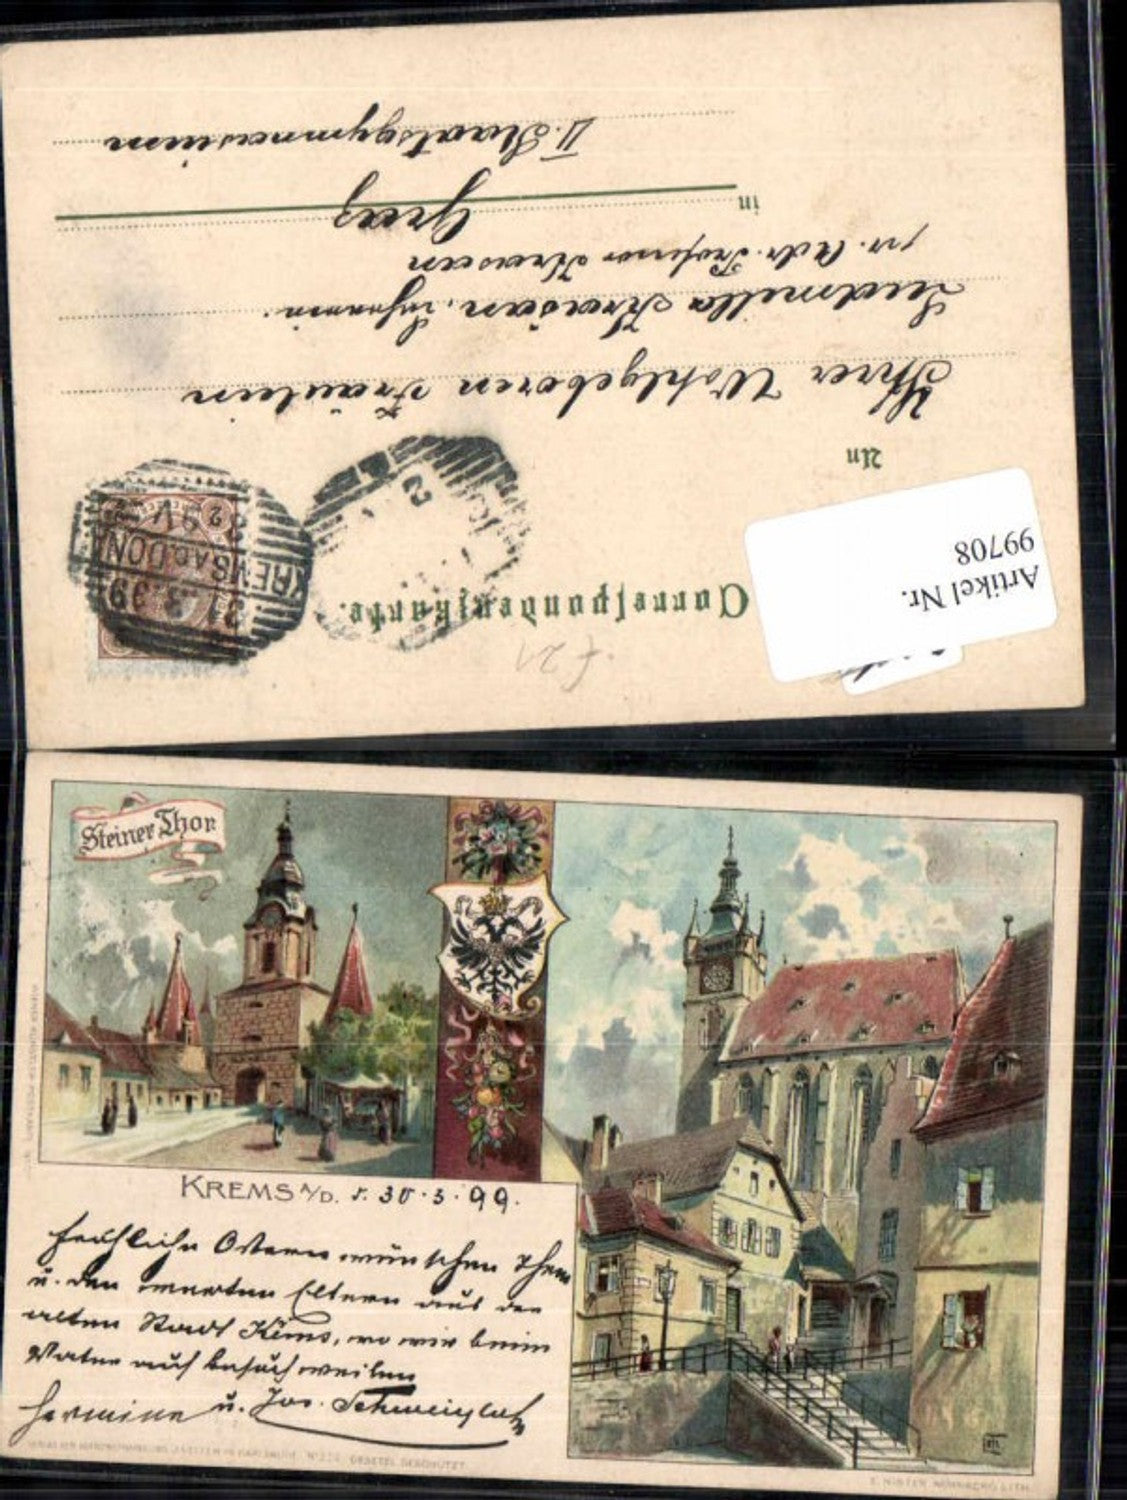 Artikel Nr.
99708
Correspondenzkarte.
f 21
KREMS a.d. DONAU
31.3.99
An
Ihrer Wohlgeboren Fräulein
Ludmilla Krašan,
pr. Adr. Professor Krašan
in Graz
II. Staatsgymnasium
Steiner Thor
KREMS A/D. 30.3.99.
Fröhliche Ostern wünschen Ihnen
u. den werten Eltern aus der
alten Stadt Krems, wo wir beim
Vater auf Besuch weilen
Hermine u. Jos.
GESETZL. GESCHÜTZT.
E. NISTER NÜRNBERG LITH.